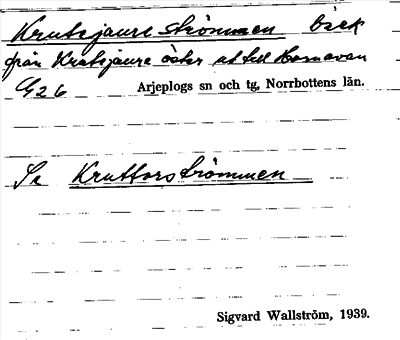 Krutsjaureströmmen bäck
från Krutsjaure öster ut till Hornavan
G26 Arjeplogs sn och tg, Norrbottens län.
Se Kruttforsströmmen
Sigvard Wallström, 1939.